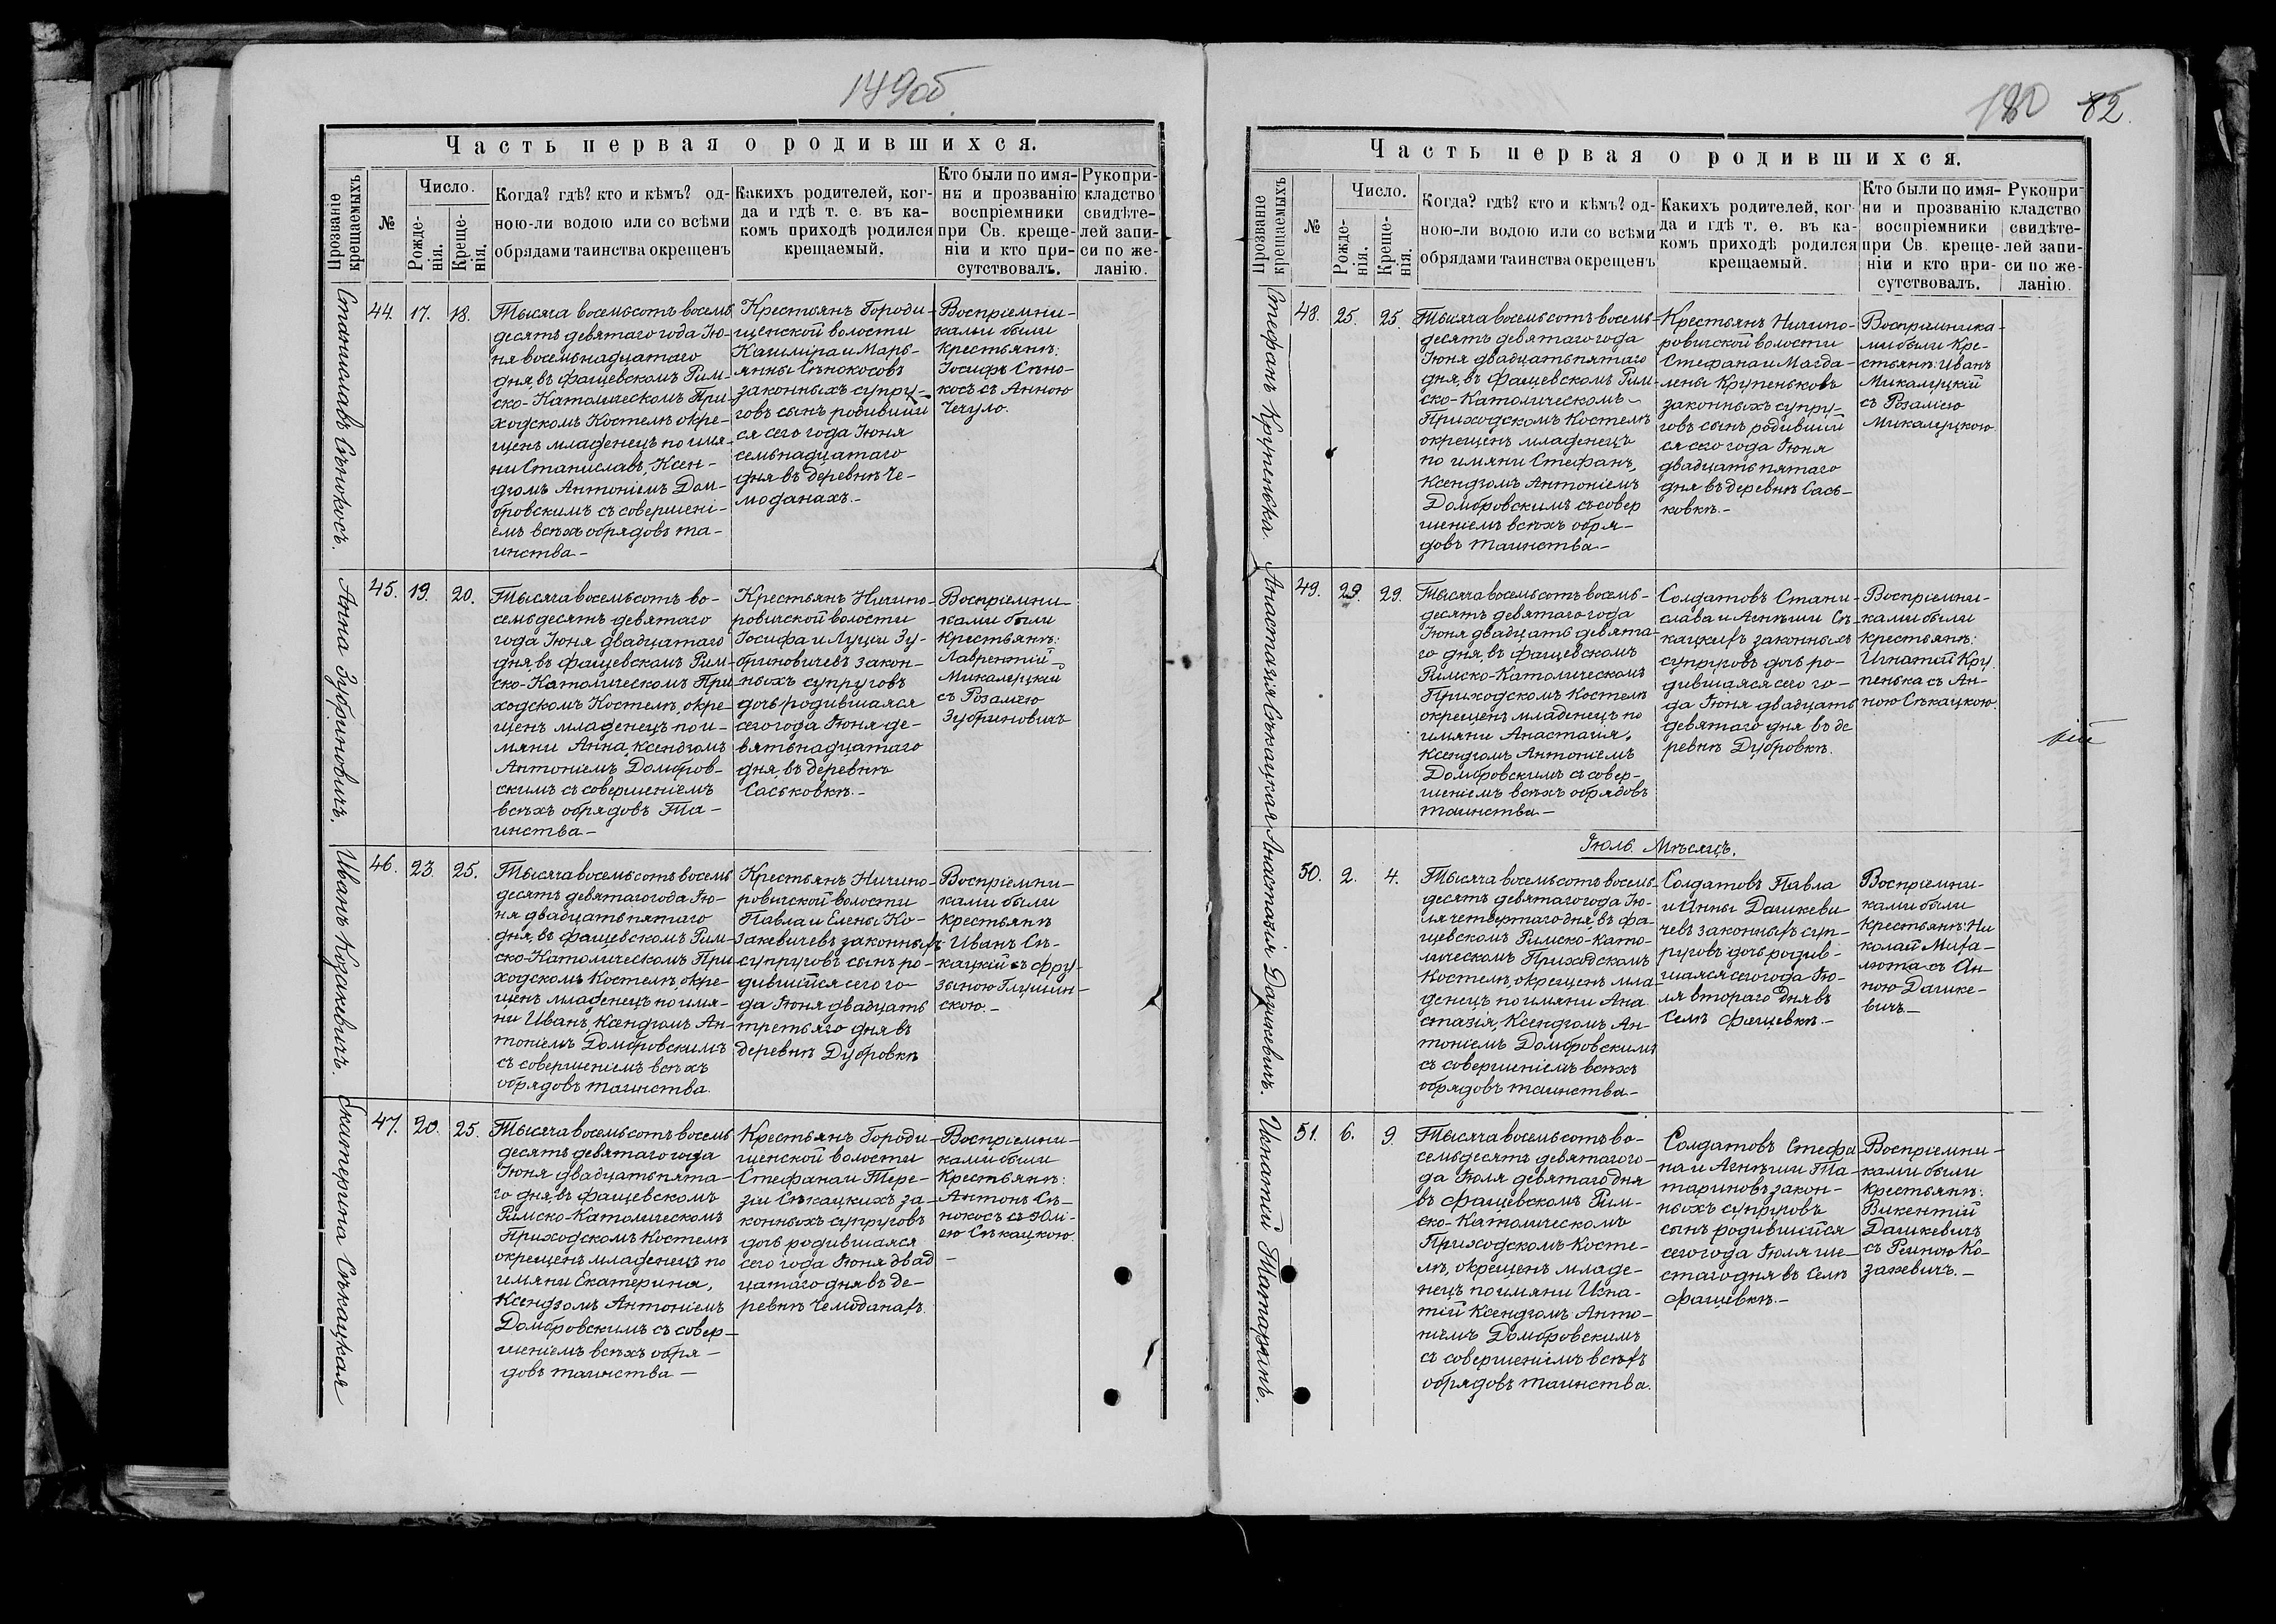 149об
Часть первая о родившихся.
Прозваніе крещаемыхъ
№
Число.
Рожде-
нія.
Креще-
нія.
Когда? гдѣ? кто и кѣмъ? од-
ною-ли водою или со всѣми
обрядами таинства окрещенъ
Какихъ родителей, ког-
да и гдѣ т. е. въ ка-
комъ приходѣ родился
крещаемый.
Кто были по имя-
ни и прозванію
воспріемники
при Св. креще-
ніи и кто при-
сутствовалъ.
Рукопри-
кладство
свидѣте-
лей запи-
си по же-
ланію.
Станиславъ Сѣнокосъ.
44. 17. 18.
Тысяча восемьсотъ восемь
десятъ девятаго года Ію-
ня восемьнадцатаго
дня, въ Фащевскомъ Рим-
ско-Католическомъ При-
ходскомъ Костелѣ окре-
щенъ младенецъ по имя-
ни Станиславъ, Ксен-
дзомъ Антоніемъ Дом-
бровскимъ съ совершені-
емъ всѣхъ обрядовъ та-
инства-
Крестьянъ Городи-
щенской волости
Казиміра и Марь-
янны Сѣнокосовъ
законныхъ супру-
говъ сынъ родивший
ся сего года Іюня
семьнадцатаго
дня въ деревнѣ Че-
моданахъ.-
Воспріемни-
ками были
Крестьянѣ:
Іосифъ Сѣно-
косъ съ Анною
Чечуло.
Анна Зубриновичъ.
45. 19. 20.
Тысяча восемьсотъ во-
семьдесятъ девятаго
года Іюня двадцатаго
дня, въ Фащевскомъ Рим-
ско-Католическомъ При-
ходскомъ Костелѣ, окре-
щенъ младенецъ по и-
мяни Анна, Ксендзомъ
Антоніемъ Домбров-
скимъ съ совершеніемъ
всѣхъ обрядовъ Та-
инства-
Крестьянъ Ничипо-
ровичской волости
Іосифа и Луціи Зу-
бриновичевъ закон-
ныхъ супруговъ
дочь родившаяся
сего года Іюня де-
вятьнадцатаго
дня, въ деревнѣ
Саськовкѣ.-
Воспріемни-
ками были
Крестьянѣ:
Лаврентій
Микалуцкій
съ Розаліею
Зубриновичъ
Иванъ Козакевичъ.
46. 23. 25.
Тысяча восемьсотъ восемь
десятъ девятаго года Ію-
ня двадцать пятаго
дня, въ Фащевскомъ Рим-
ско-Католическомъ При
ходскомъ Костелѣ, окре-
щенъ младенецъ по имя-
ни Иванъ, Ксендзомъ Ан-
тоніемъ Домбровскимъ
съ совершеніемъ всѣхъ
обрядовъ таинства.
Крестьянъ Ничипо-
ровичской волости
Павла и Елены Ко-
закевичевъ законныхъ
супруговъ сынъ ро-
дившійся сего го-
да Іюня двадцать
третьяго дня въ
деревнѣ Дубровкѣ
Воспріемни-
ками были
Крестьянѣ
Иванъ Сѣ-
кацкій съ Фру-
зыною Глушин-
скою.-
Екатерина Сѣкацкая
47. 20. 25.
Тысяча восемьсотъ восемь
десятъ девятаго года
Іюня двадцать пята-
го дня, въ Фащевскомъ
Римско-Католическомъ
Приходскомъ Костелѣ
окрещенъ младенецъ по
имяни Екатерина,
Ксендзомъ Антоніемъ
Домбровскимъ съ совер-
шеніемъ всѣхъ обря-
довъ таинства-
Крестьянъ Городи
щенской волости
Стефана и Тере-
зіи Сѣкацкихъ за-
конныхъ супруговъ
дочь родившаяся
сего года Іюня двад
цатаго дня въ де-
ревнѣ Чемоданахъ.
Воспріемни-
ками были
Крестьянѣ:
Антонъ Сѣ-
нокосъ съ Юлі-
ею Сѣкацкою
-
180 82.
Часть первая о родившихся.
Прозваніе крещаемыхъ
№
Число.
Рожде-
нія.
Креще-
нія.
Когда? гдѣ? кто и кѣмъ? од-
ною-ли водою или со всѣми
обрядами таинства окрещенъ
Какихъ родителей, ког-
да и гдѣ т. е. въ ка-
комъ приходѣ родился
крещаемый.
Кто были по имя-
ни и прозванію
воспріемники
при Св. креще-
ніи и кто при-
сутствовалъ.
Рукопри-
кладство
свидѣте-
лей запи-
си по же-
ланію.
Стефанъ Крупенька.
48. 25. 25.
Тысяча восемьсотъ восемь-
десятъ девятаго года
Іюня двадцать пятаго
дня, въ Фащевскомъ Рим-
ско-Католическомъ
Приходскомъ Костелѣ
окрещенъ младенецъ
по имяни Стефанъ,
Ксендзомъ Антоніемъ
Домбровскимъ съ совер
шеніемъ всѣхъ обря-
довъ таинства-
Крестьянъ Ничипо-
ровичской волости
Стефана и Магда-
лены Крупеньковъ
законныхъ супру-
говъ сынъ родивший
ся сего года Іюня
двадцать пятаго
дня въ деревнѣ Сась-
ковкѣ.-
Воспріемника-
ми были Кре-
стьянѣ: Иванъ
Микалуцкій
съ Розаліею
Микалуцкою
Анастазія Сѣкацкая
49. 29. 29.
Тысяча восемьсотъ восемь-
десятъ девятаго года
Іюня двадцать девята-
го дня, въ Фащевскомъ
Римско-Католическомъ
Приходскомъ Костелѣ
окрещенъ младенецъ по
имяни Анастазія,
Ксендзомъ Антоніемъ
Домбровскимъ съ совер-
шеніемъ всѣхъ обрядовъ
таинства-
Солдатовъ Стани-
слава и Агнѣши Сѣ-
кацкихъ законныхъ
супруговъ дочь ро-
дившаяся сего го-
да Іюня двадцать
девятаго дня въ де
ревнѣ Дубровкѣ.
Воспріемни-
ками были
Крестьянѣ:
Игнатій Кру
пенька съ Ан-
ною Сѣкацкою.
Іюль Мѣсяцъ.
Анастазія Дашкевичъ.
50. 2. 4.
Тысяча восемьсотъ восемь-
десятъ девятаго года Ію-
ля четвертаго дня, въ Фа-
щевскомъ Римско-като-
лическомъ Приходскомъ
Костелѣ, окрещенъ мла-
денецъ по имяни Ана
стазія, Ксендзомъ Ан-
тоніемъ Домбровскимъ
съ совершеніемъ всѣхъ
обрядовъ таинства-
Солдатовъ Павла
и Анны Дашкеви
чевъ законныхъ суп-
руговъ дочь родив-
шаяся сего года Ію-
ля втораго дня въ
Селѣ Фащевкѣ.-
Воспріемни-
ками были
Крестьянѣ: Ни
колай Миха-
люта съ Ан-
ною Дашке-
вичъ-
Игнатій Татаринъ.
51. 6. 9.
Тысяча восемьсотъ во-
семьдесятъ девятаго го-
да Іюля девятаго дня
въ Фащевскомъ Рим-
ско-Католическомъ
Приходскомъ Косте-
лѣ, окрещенъ младе-
нецъ по имяни Игна-
тій Ксендзомъ Анто-
ніемъ Домбровскимъ
съ совершеніемъ всѣхъ
обрядовъ таинства.
Солдатовъ Стефа
на и Агнѣши Та-
тариновъ закон-
ныхъ супруговъ
сынъ родившійся
сего года Іюля ше-
стаго дня въ Селѣ
Фащевкѣ.-
Воспріемни-
ками были
Крестьянѣ:
Викентій
Дашкевичъ
съ Региною Ко-
закевичъ.-